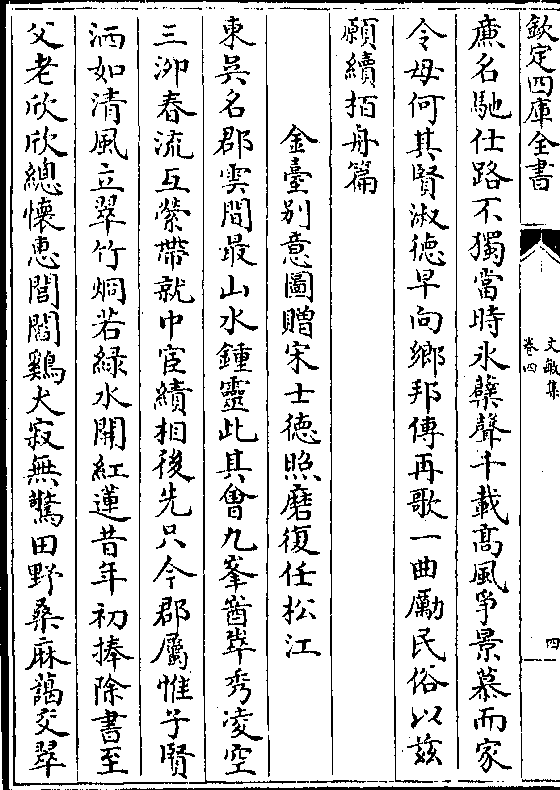 欽定四庫全書
文敏集
卷四
四
庶名馳仕路不獨當時氷蘗聲千載髙風爭景慕而家
令母何其賢淑徳早向鄉邦傳再歌一曲勵民俗以兹
願續栢舟篇
金臺别意圖贈宋士徳照磨復任松江
東吳名郡雲間最山水鍾靈此其會九峯崷崒秀凌空
三泖春流互縈帶就中宦績相後先只今郡屬惟子賢
洒如清風立翠竹炯若緑水開紅蓮昔年初捧除書至
父老欣欣總懷恵閭閻鷄犬寂無驚田野桑麻藹交翠